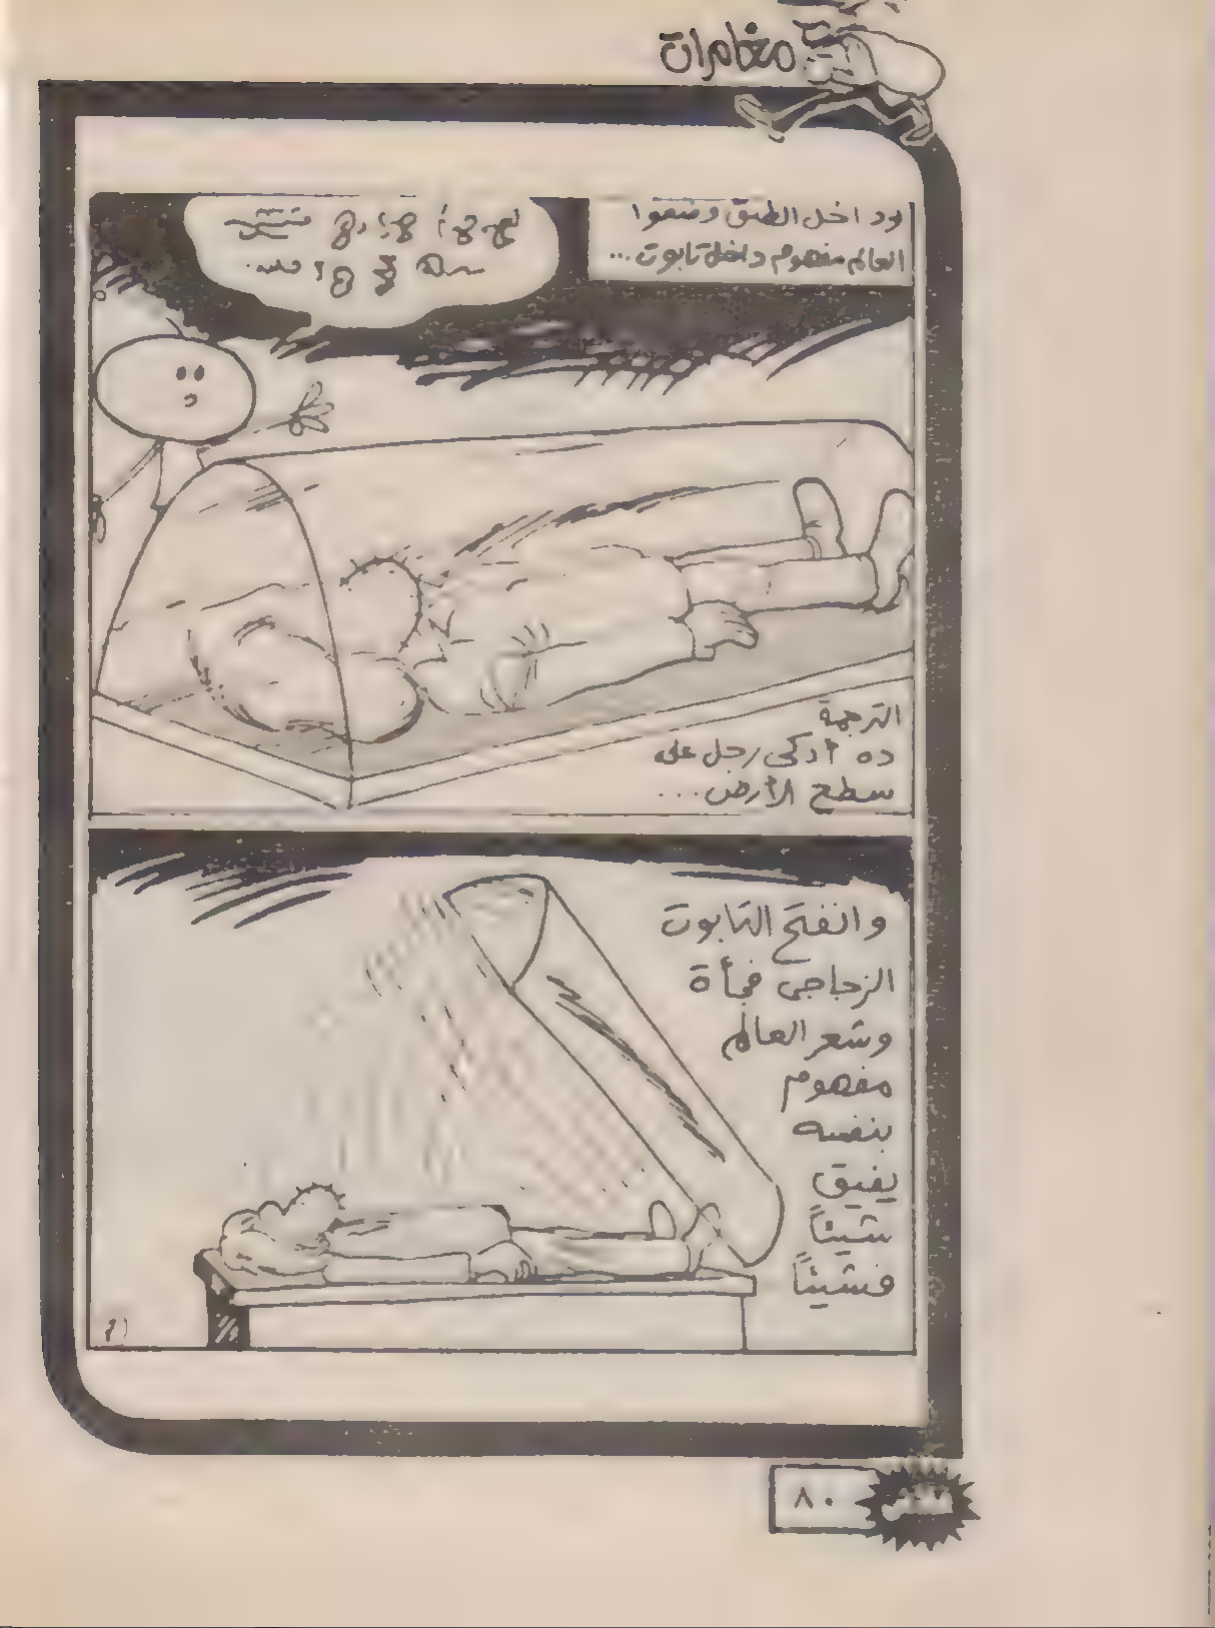 مغامرات
وداخل الطبق وضعوا
العالم مفهوم داخل تابوت...
الترجمة
ده أذكى رجل على
سطح الأرض...
وانفتح التابوت
الزجاجى فجأة
وشعر العالم
مفهوم
بنفسه
يفيق
شيئاً
فشيئاً
٨٠